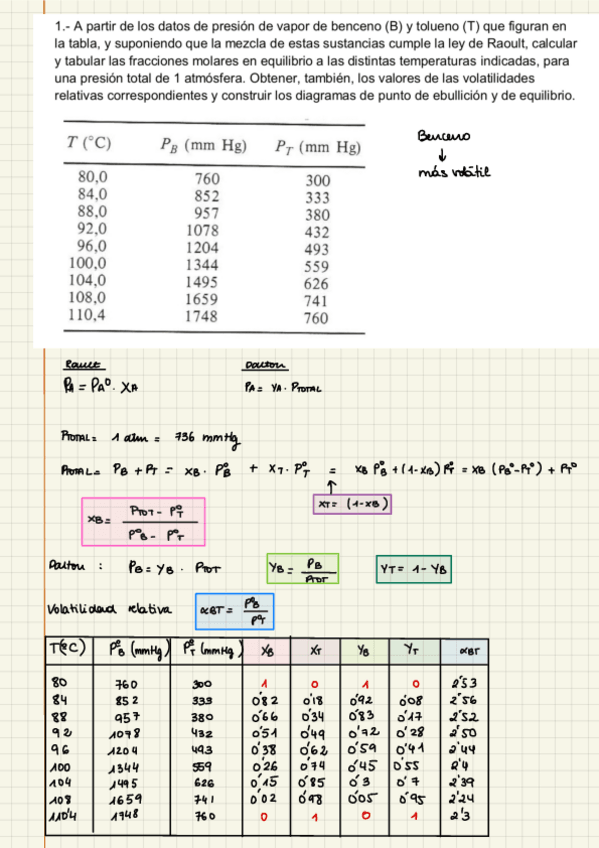 1.- A partir de los datos de presión de vapor de benceno (B) y tolueno (T) que figuran en
la tabla, y suponiendo que la mezcla de estas sustancias cumple la ley de Raoult, calcular
y tabular las fracciones molares en equilibrio a las distintas temperaturas indicadas, para
una presión total de 1 atmósfera. Obtener, también, los valores de las volatilidades
relativas correspondientes y construir los diagramas de punto de ebullición y de equilibrio.
T (°C) P_B (mm Hg) P_T (mm Hg)
80,0 760 300
84,0 852 333
88,0 957 380
92,0 1078 432
96,0 1204 493
100,0 1344 559
104,0 1495 626
108,0 1659 741
110,4 1748 760
Benceno
↓
más volátil
Raoult Dalton
PA = PAº · XA PA = YA · PTOTAL
PTOTAL = 1 atm = 736 mmHg
PTOTAL = PB + PT = XB · PºB + XT · PºT = XB PºB + (1-XB) PºT = XB (PBº-PTº) + PTº
↑
XT = (1-XB)
XB = PTOT - PºT / PºB - PºT
Dalton : PB = YB · PTOT YB = PB / PTOT YT = 1 - YB
Volatilidad relativa αBT = PºB / PºT
T(ºC) PºB (mmHg) PºT (mmHg) XB XT YB YT αBT
80 760 300 1 0 1 0 2'53
84 852 333 0'82 0'18 0'92 0'08 2'56
88 957 380 0'66 0'34 0'83 0'17 2'52
92 1078 432 0'51 0'49 0'72 0'28 2'50
96 1204 493 0'38 0'62 0'59 0'41 2'44
100 1344 559 0'26 0'74 0'45 0'55 2'4
104 1495 626 0'15 0'85 0'3 0'7 2'39
108 1659 741 0'02 0'98 0'05 0'95 2'24
110'4 1748 760 0 1 0 1 2'3